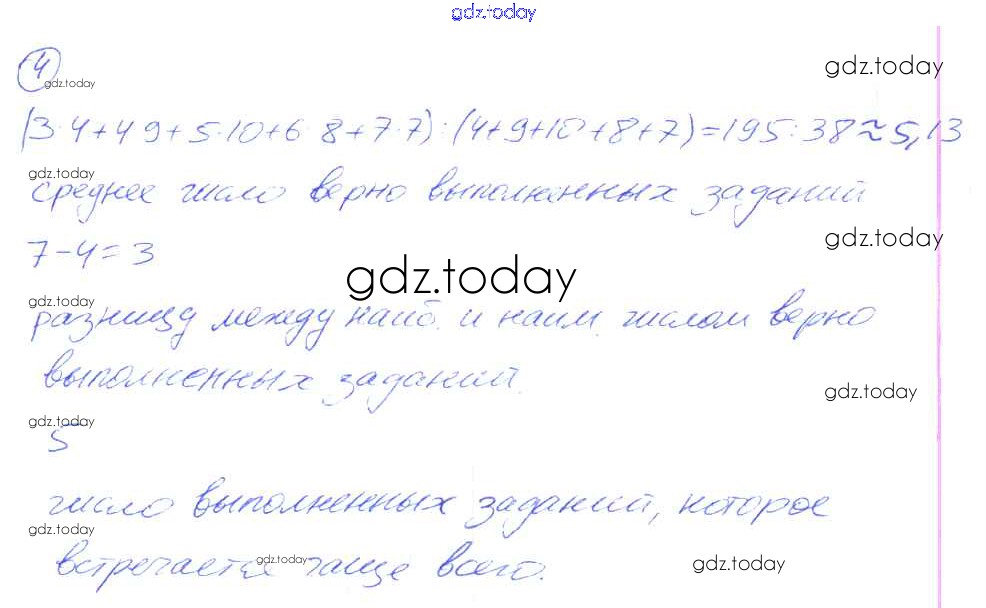 gdz.today
4
gdz.today
gdz.today
(3·4+4·9+5·10+6·8+7·7):(4+9+10+8+7)=195:38≈5,13
gdz.today
среднее число верно выполненных заданий
7-4=3
gdz.today
gdz.today
gdz.today
разницу между наиб. и наим. числом верно
выполненных заданий.
gdz.today
gdz.today
5
число выполненных заданий, которое
gdz.today
встречается чаще всего.
gdz.today
gdz.today